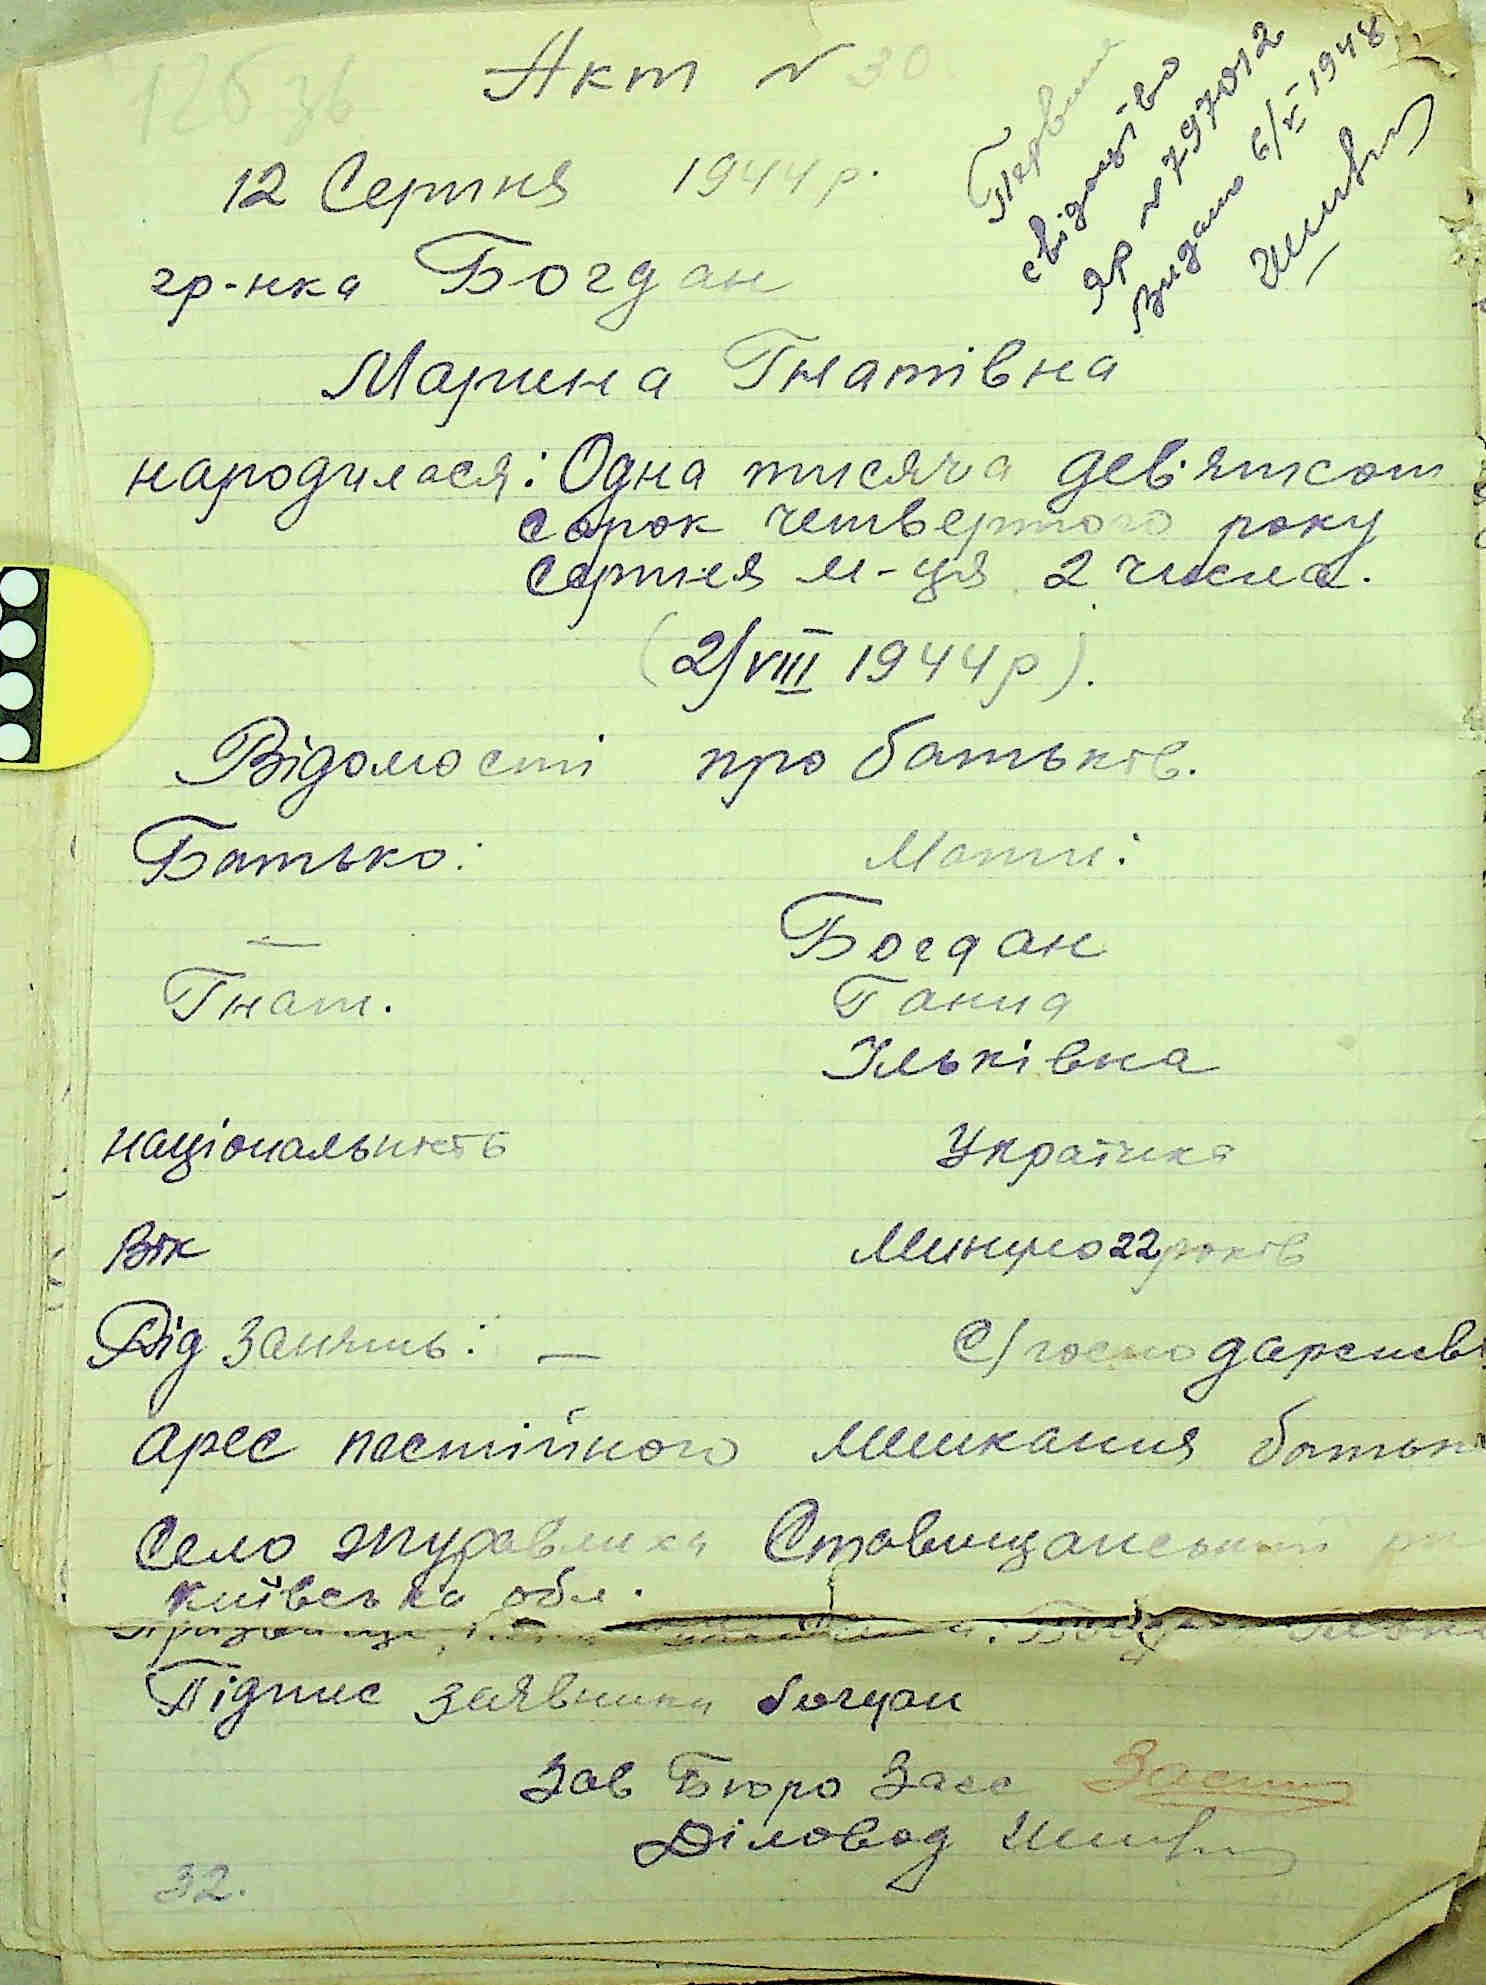 126 зв
Акт № 30
Первине
свідоцтво
ЯР № 797012
Видано 6/VI 1948
12 Серпня 1944 р.
гр-нка Богдан
Марина Гнатівна
народилася: Одна тисяча дев'ятсот
сорок четвертого року
серпня м-ця 2 числа.
(2/VIII 1944 р).
Відомості про батьків.
Батько: Мати:
— Богдан
Гнат. Ганна
Ільківна
національність Українка
Вік Минуло 22 років
Рід занять: — С/господарств
арес постійного мешкання батьк
Село Журавлиха Ставищанський
Київська обл.
Підпис заявника богдан
Зав Бюро Загс
Діловод
32.